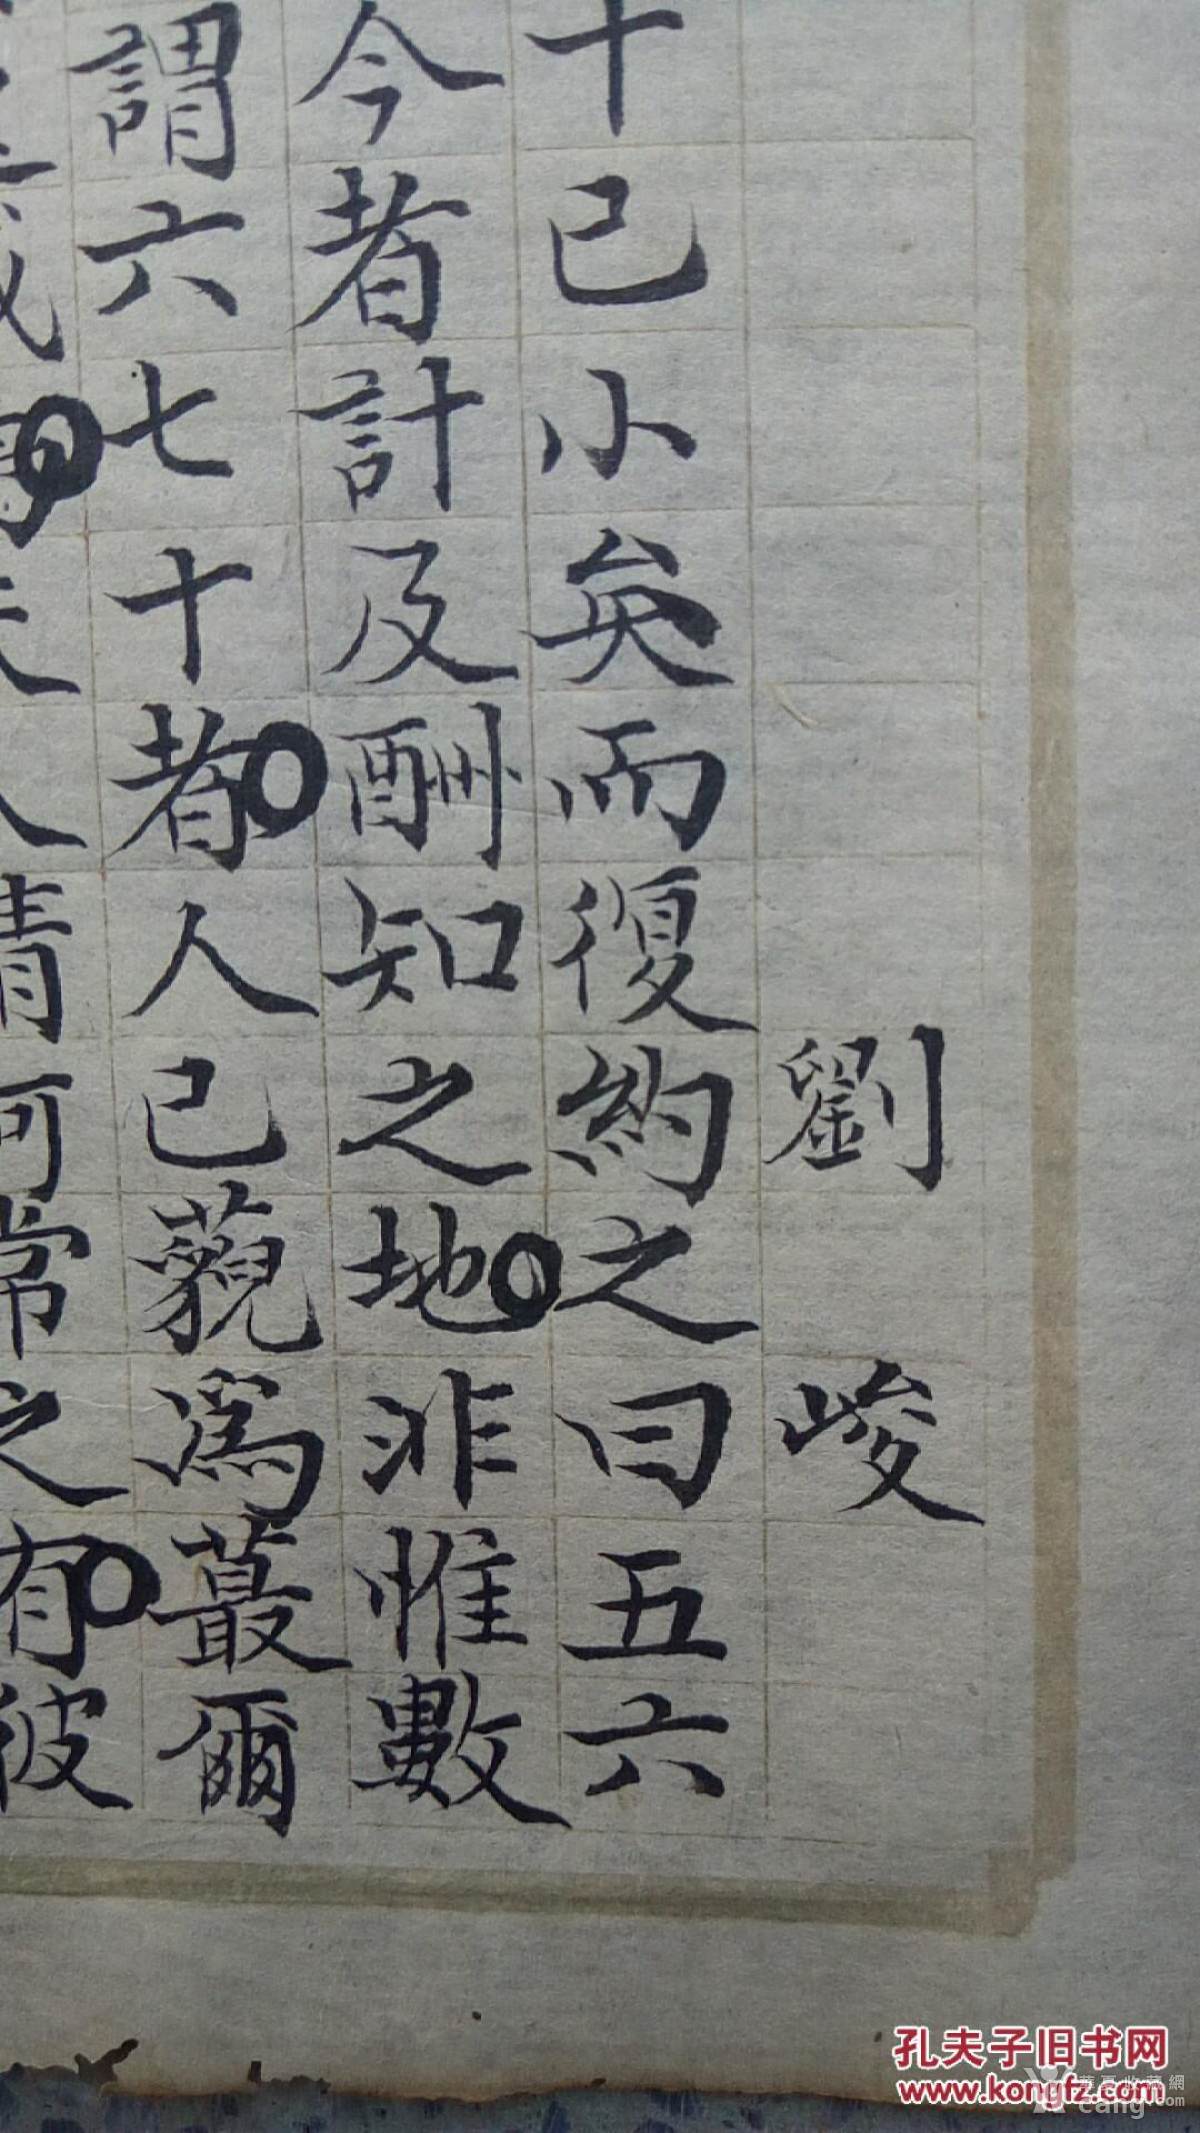 劉峻
十已小矣而復約之曰五六
今者計及酬知之地非惟數
謂六七十者人已藐為蕞爾
夫人情何常之有彼
孔夫子旧书网
www.kongfz.com
華夏收藏網
cang.com